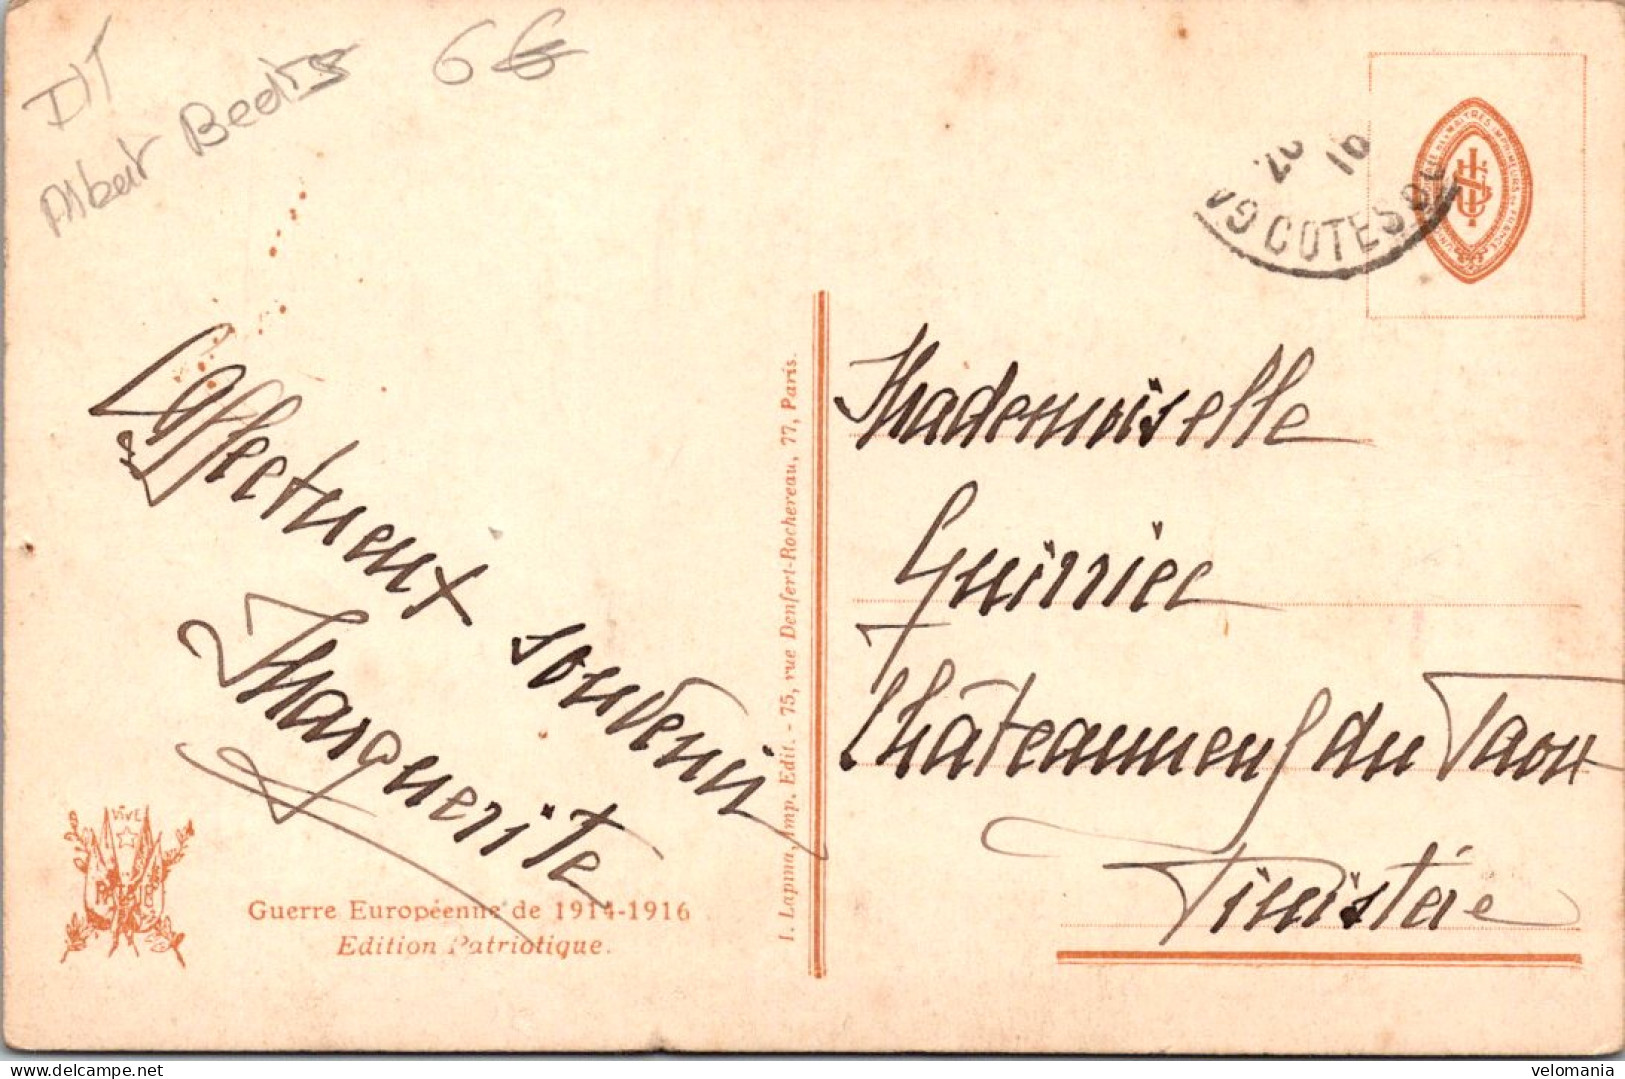 Illt
Albert
6€
16
COTES DU
Affectueux souvenir
Marguerite
VIVE
PATRIE
Guerre Européenne de 1914-1916
Edition Patriotique.
I. Lapina, Imp. Edit. - 75, rue Denfert-Rochereau, 77, Paris.
Mademoiselle
Guirriec
Châteauneuf du Faou
Finistère
velomania